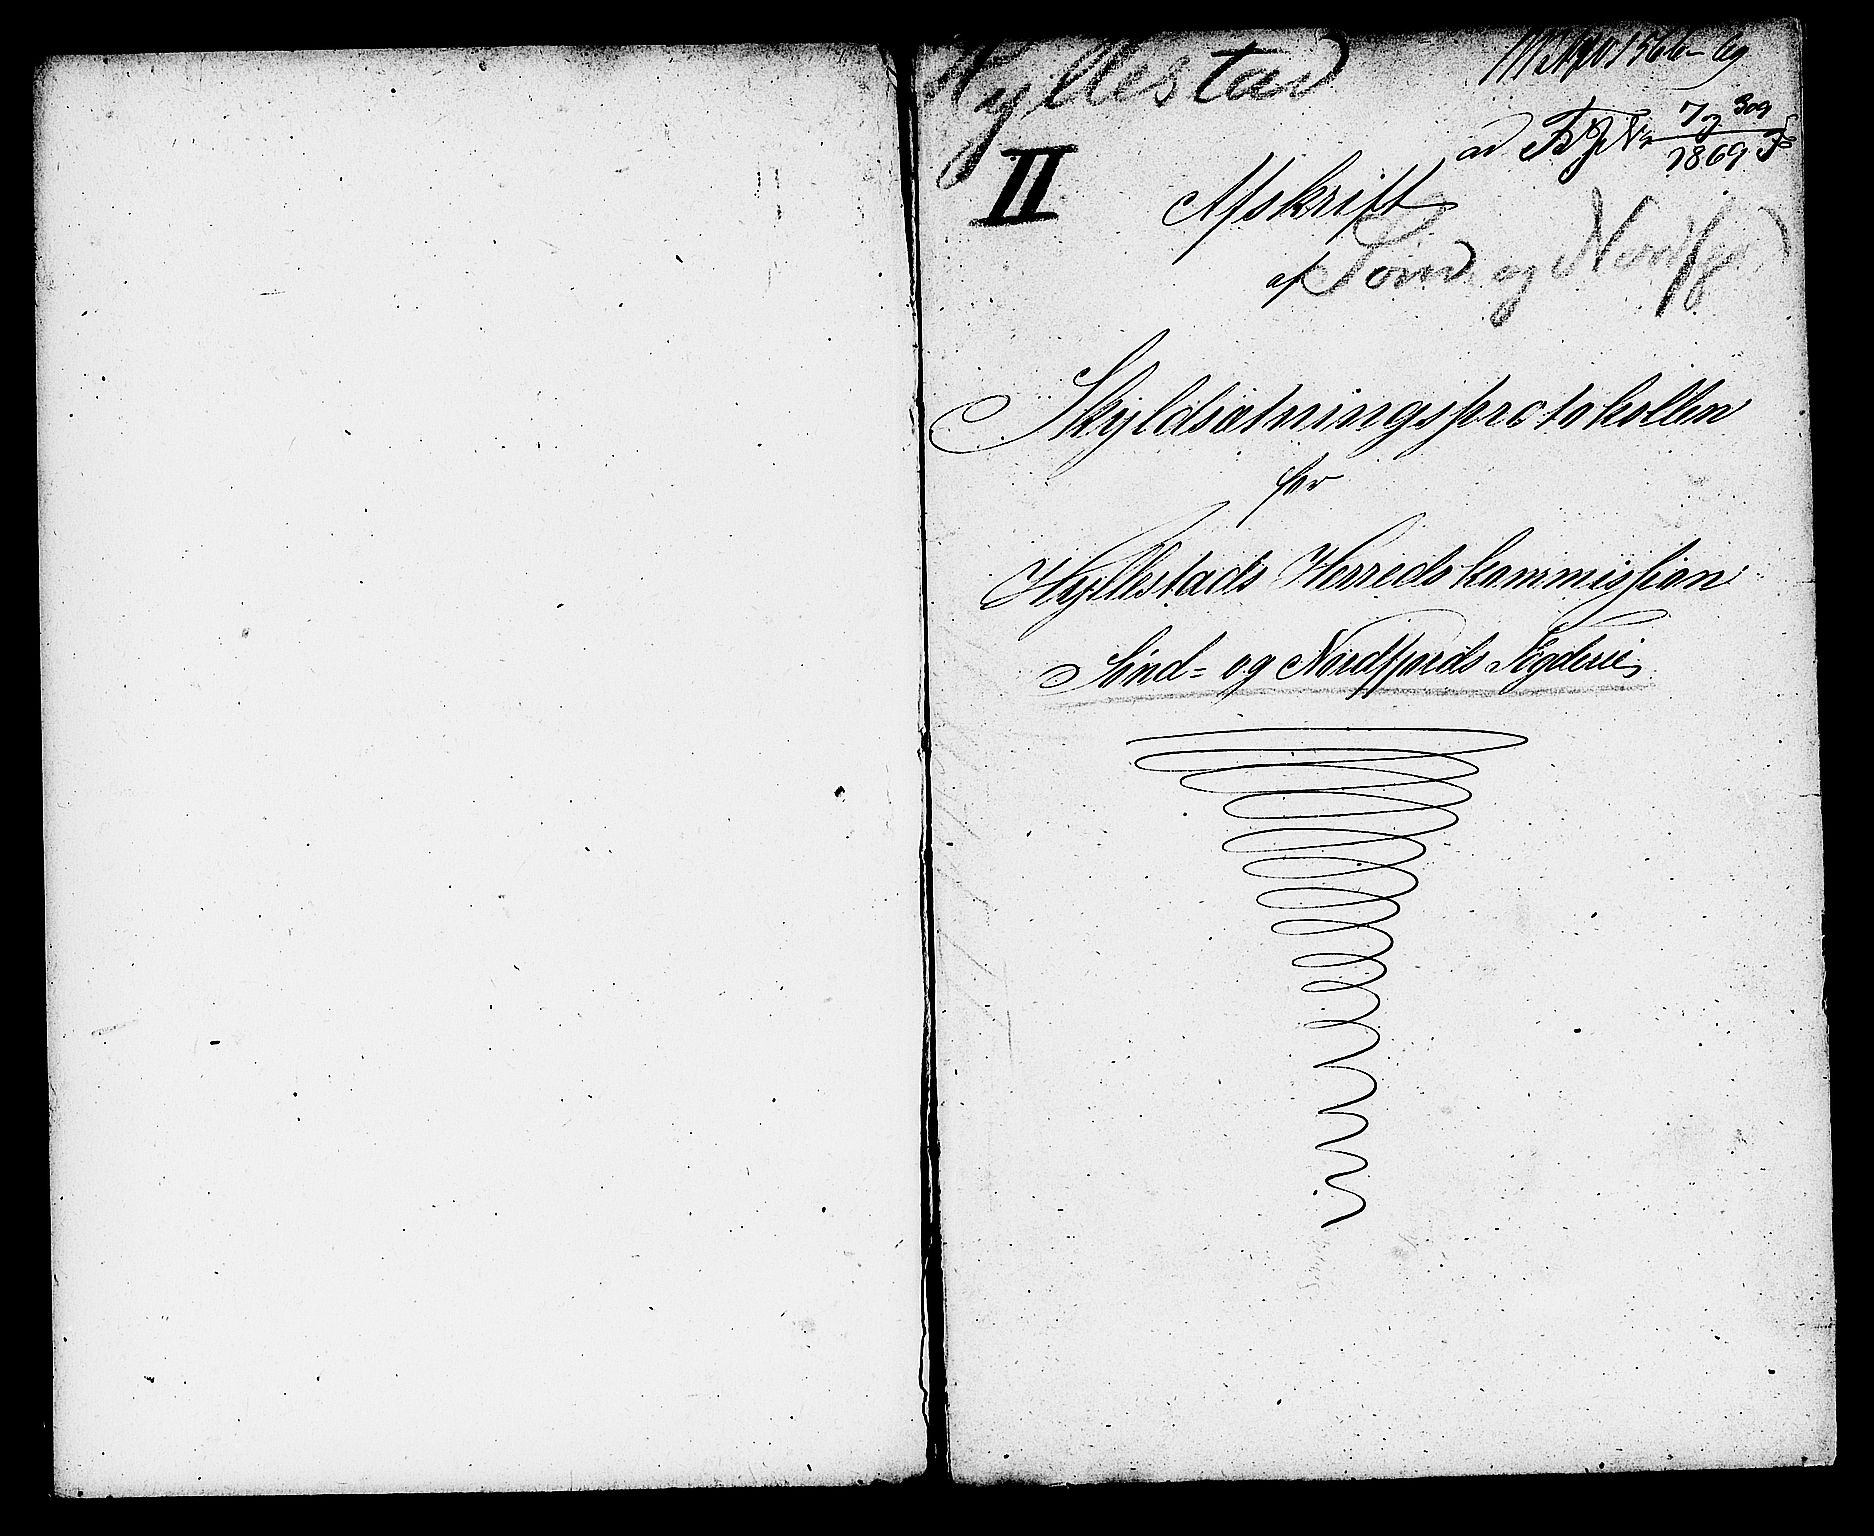 Hyllestad
II
ad 7 og 309
1869
Afskrift
af Sønd og Nordfjord
Skyldsætningsprotokollen
for
Hyllestads Herredskommission
Sønd= og Nordfjords Fogderi,